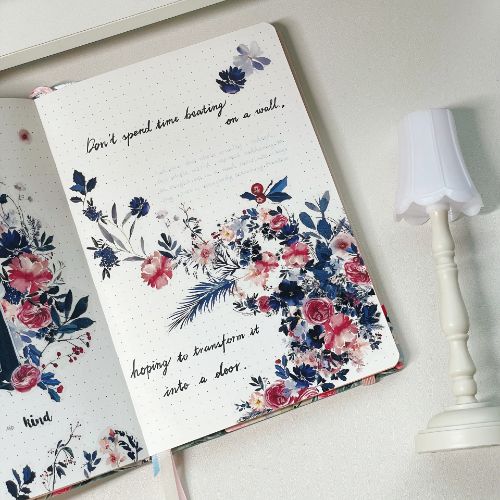 Don't spend time beating
on a wall,
hoping to transform it
into a door.
kind